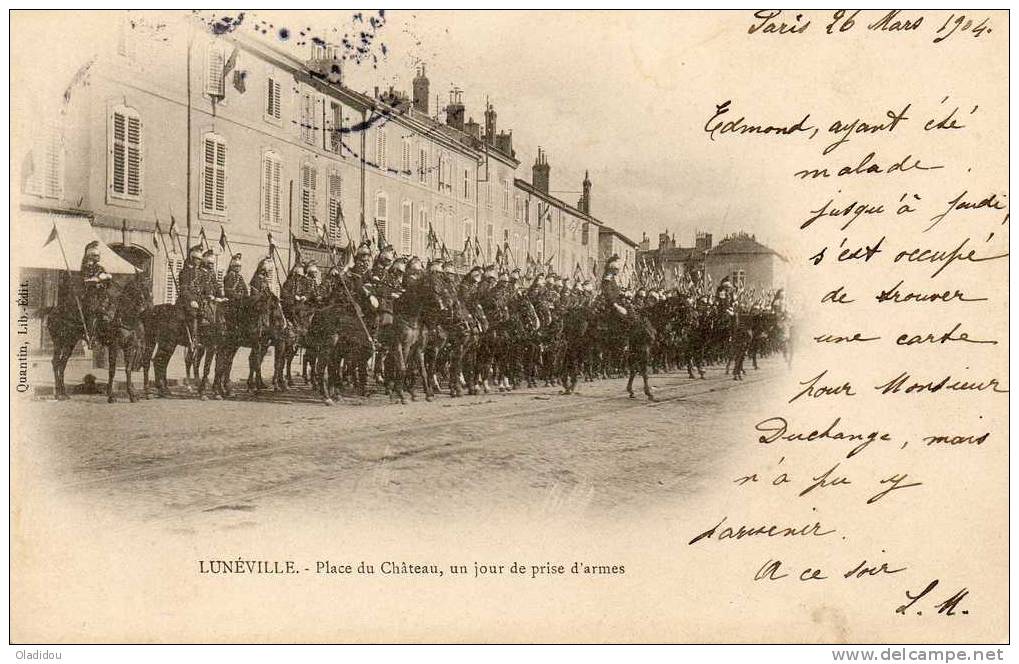 Paris 26 Mars 1904.
Edmond, ayant été
malade
jusqu'à jeudi,
s'est occupé
de trouver
une carte
pour Monsieur
Duchange, mais
n'a pu y
parvenir.
A ce soir
L. M.
Quantin, Lib. Édit.
LUNÉVILLE. - Place du Château, un jour de prise d'armes
Oladidou
www.delcampe.net